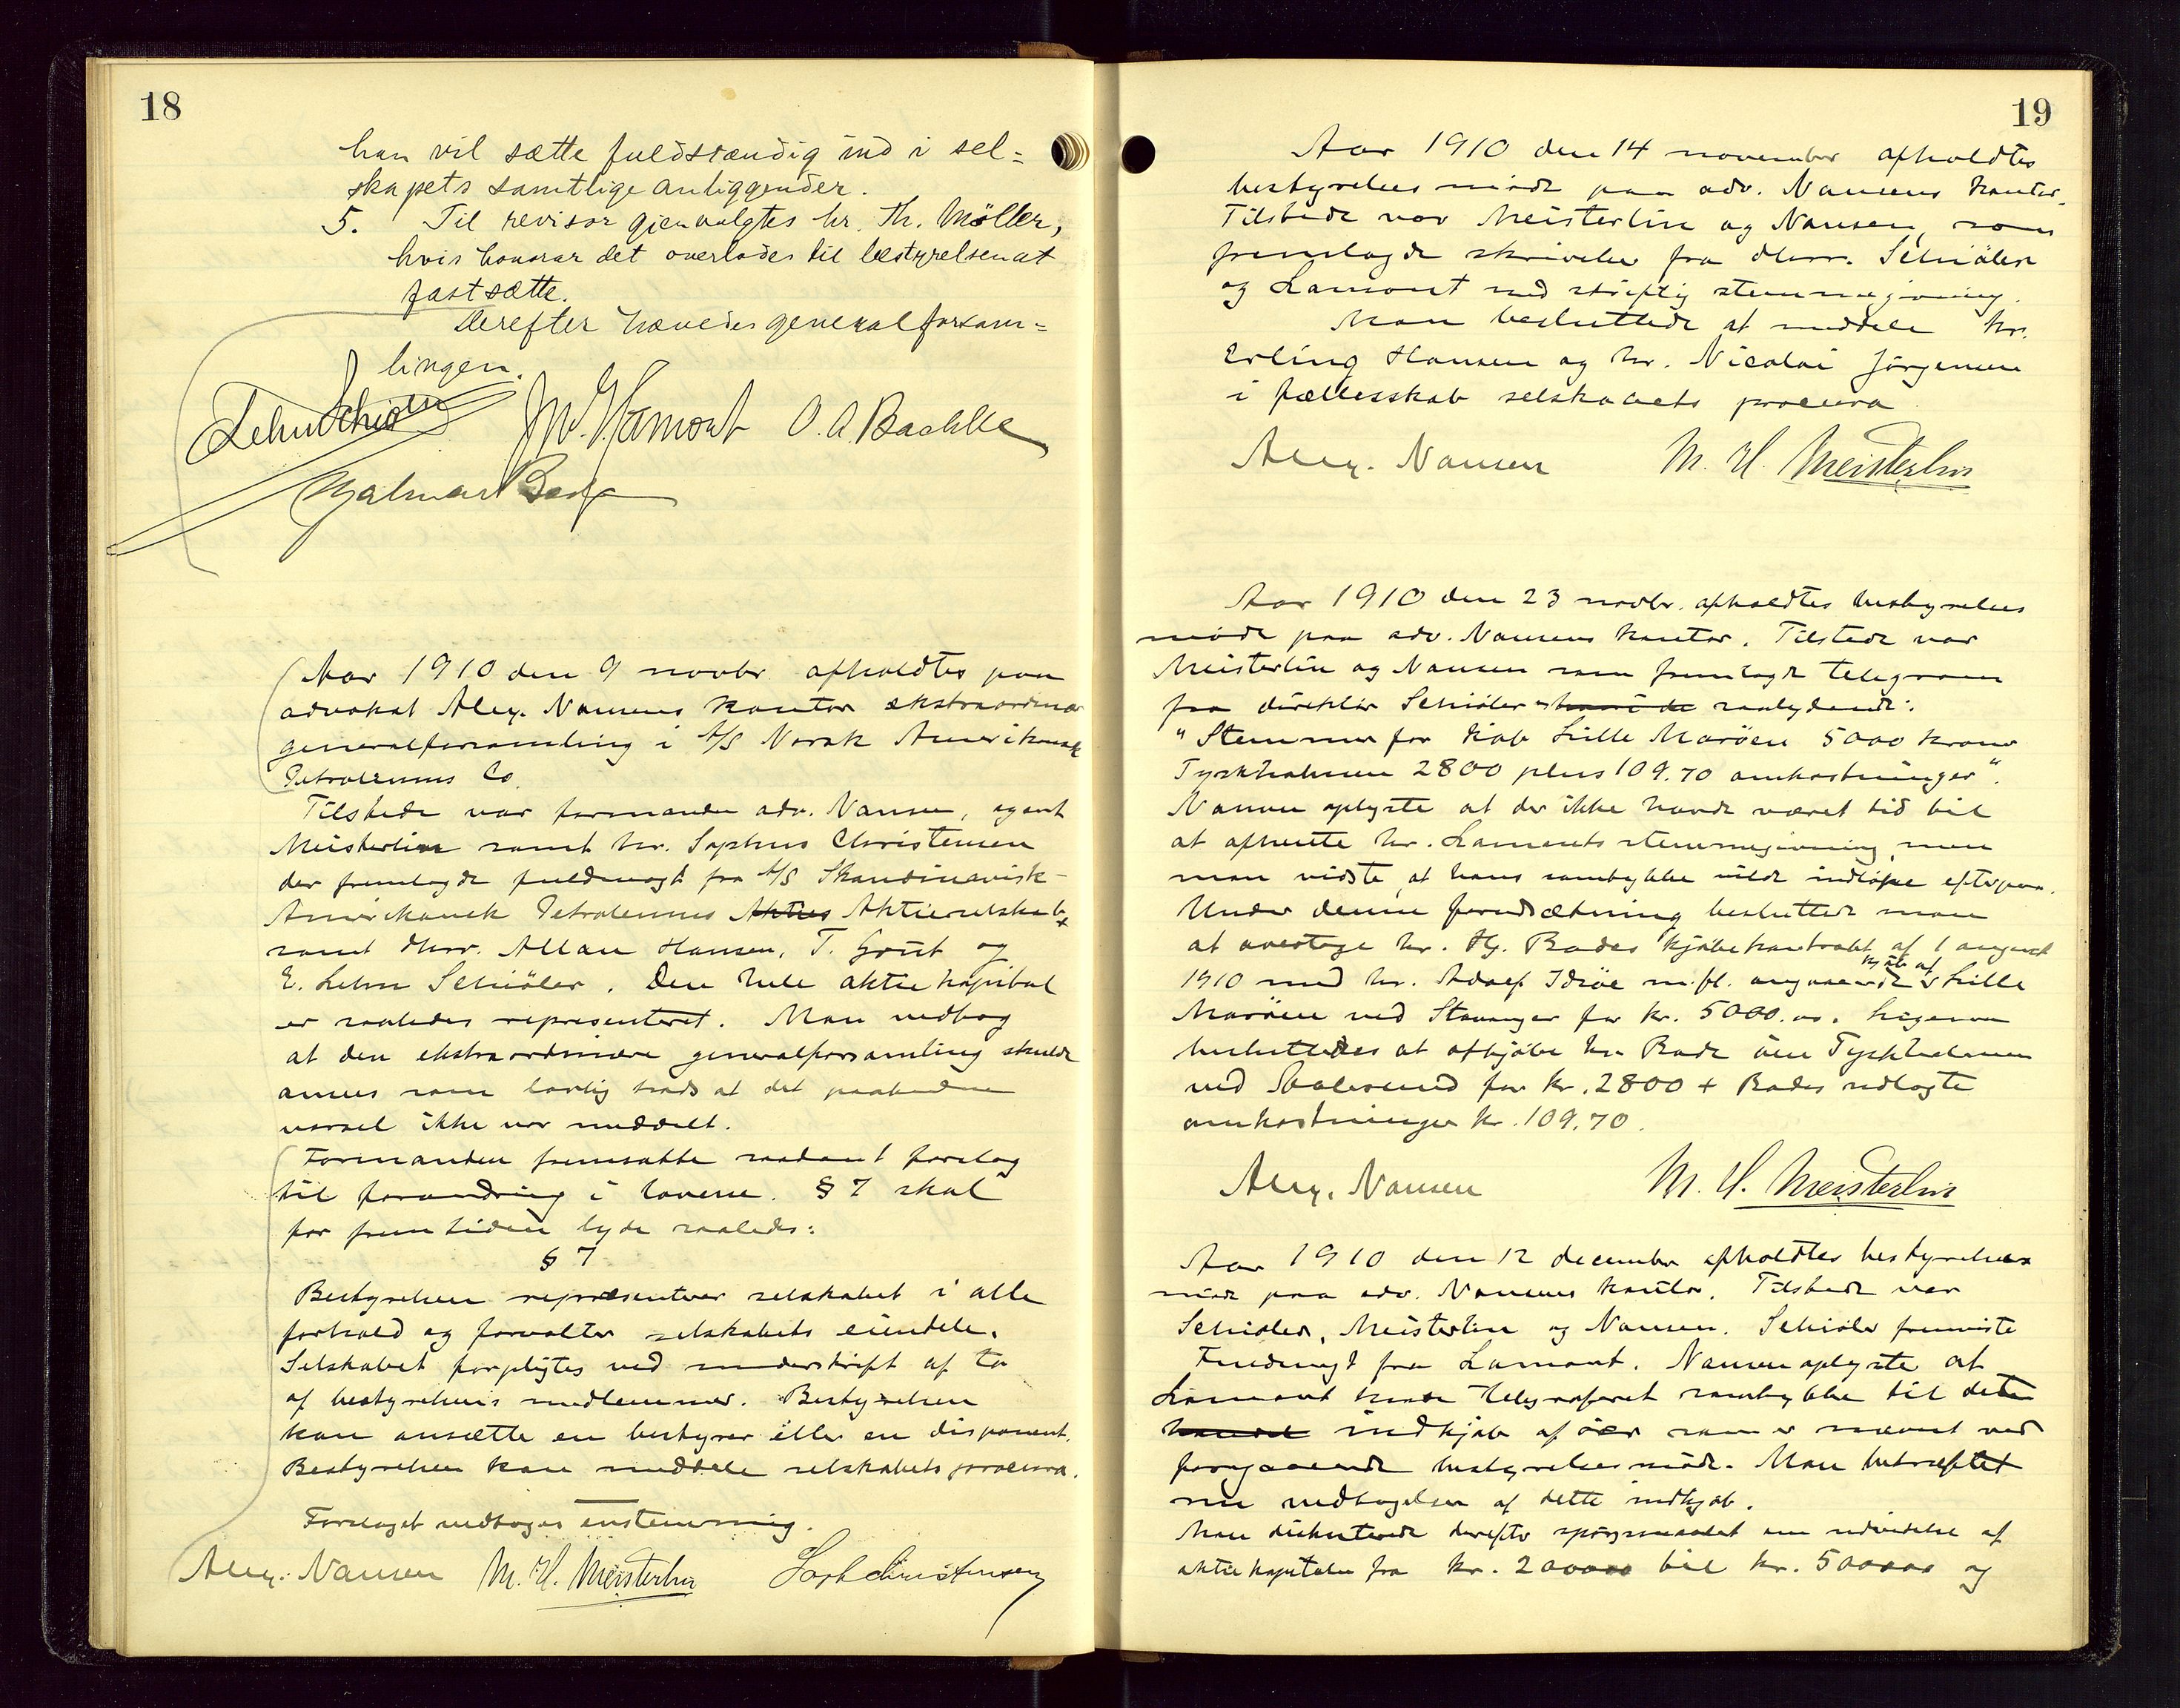 18
han vil sætte fuldstændig ind i sel=
skapets samtlige anliggender.
5. Til revisor gjenvalgtes hr. Th. Møller,
hvis honorar det overlodes til bestyrelsen at
fastsætte.
Derefter hævedes generalforsam=
lingen.
Lehn Schiøler J.W. Lamont O. A. Bachke
Hjalmar Berg
Aar 1910 den 9 novbr. afholdtes paa
advokat Alex. Nansens kontor ekstraordinær
generalforsamling i A/S Norsk Amerikansk
Petroleums Co.
Tilstede var formanden adv. Nansen, agent
Meisterlin samt hr. Sophus Christensen
der fremlagde fuldmagt fra A/S Skandinavisk-
Amerikansk Petroleums Akties Aktieselskab
samt dhrr. Allan Hansen, T. Grüt og
E. Lehn Schiøler. Den hele aktiekapital
er saaledes representeret. Man vedtog
at den ekstraordinære generalforsamling skulde
ansees som lovlig trods at det paabudne
varsel ikke var meddelt.
Formanden fremsatte saadant forslag
til forandring i lovene. § 7 skal
for fremtiden lyde saaledes:
§ 7
Bestyrelsen repræsenterer selskabet i alle
forhold og forvalter selskabets eiendele.
Selskabet forpligtes ved underskrift af to
af bestyrelsens medlemmer. Bestyrelsen
kan ansætte en bestyrer eller en disponent.
Bestyrelsen kan meddele selskabets procura.
Forslaget vedtoges enstemmig.
Alex. Nansen M. H. Meisterlin Soph Christensen
19
Aar 1910 den 14 november afholdtes
bestyrelsesmøde paa adv. Nansens kontor.
Tilstede var Meisterlin og Nansen, som
fremlagde skrivelse fra dhrr. Schiøler
og Lamont med skriftlig stemmegivning.
Man besluttede at meddele hr.
Erling Hansen og hr. Nicolai Jörgensen
i fællesskab selskabets procura
Alex. Nansen M. H. Meisterlin
Aar 1910 den 23 novbr. afholdtes bestyrelses
møde paa adv. Nansens kontor. Tilstede var
Meisterlin og Nansen som fremlagde telegram
fra direktør Schiøler saalydende:
"Stemmer for kjøb Lille Marøen 5000 kroner
Tyskholmen 2800 plus 109.70 omkostninger".
Nansen oplyste at der ikke havde været tid til
at afvente hr. Lamonts stemmegivning, men
man vidste, at hans samtykke vilde indløpe efterpaa.
Under denne forudsætning besluttede man
at overtage hr. Hj. Bades kjøbekontrakt af 1 august
1910 med hr. Adolf Idsöe m.fl. angaaende kjøb af Lille
Marøen ved Stavanger for kr. 5000.00. Ligesaa
besluttedes at afkjøbe hr. Bade øen Tyskholmen
ved Aalesund for kr. 2800 + Bades udlagte
omkostninger kr. 109.70.
Alex. Nansen M. H. Meisterlin
Aar 1910 den 12 december afholdtes bestyrelses
møde paa adv. Nansens kontor. Tilstede var
Schiøler, Meisterlin og Nansen. Schiøler fremviste
Fuldmagt fra Lamont. Nansen oplyste at
Lamont havde telegraferet samtykke til det
indkjøb af øer som er nævnt ved
forgaaende bestyrelsesmøde. Man bekræftet
nu vedtagelsen af dette indkjøb.
Man diskuterede derefter spørgsmaalet om udvidelse af
aktiekapitalen fra kr. 200000 til kr. 500000 og